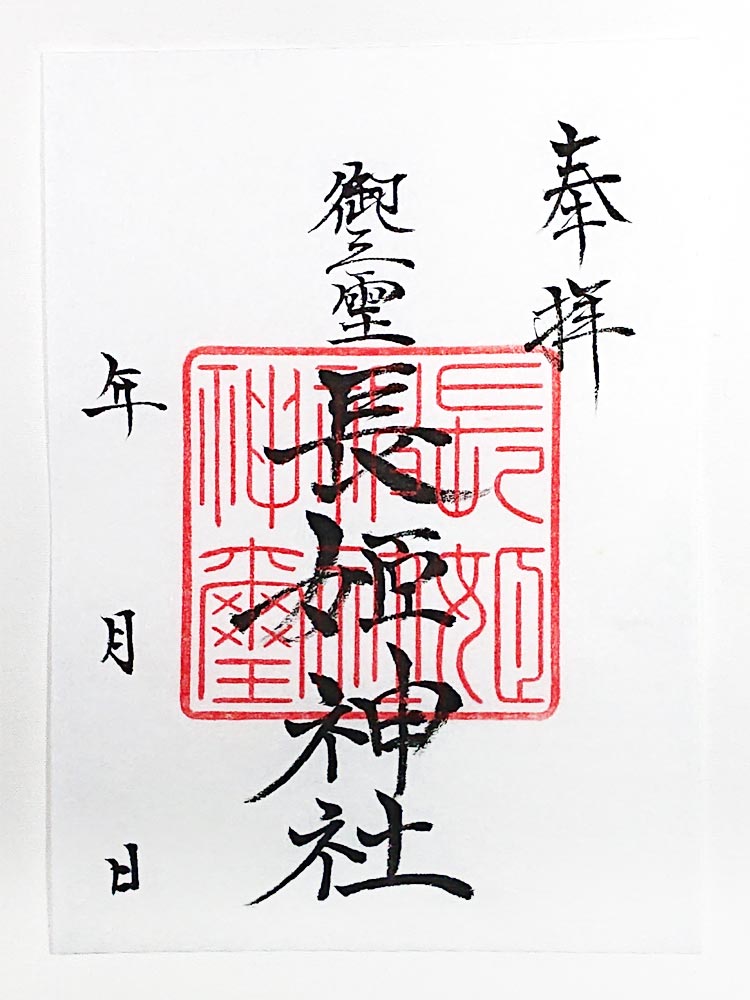 奉拝
御三霊 長姫神社
年 月 日
長姫
神璽